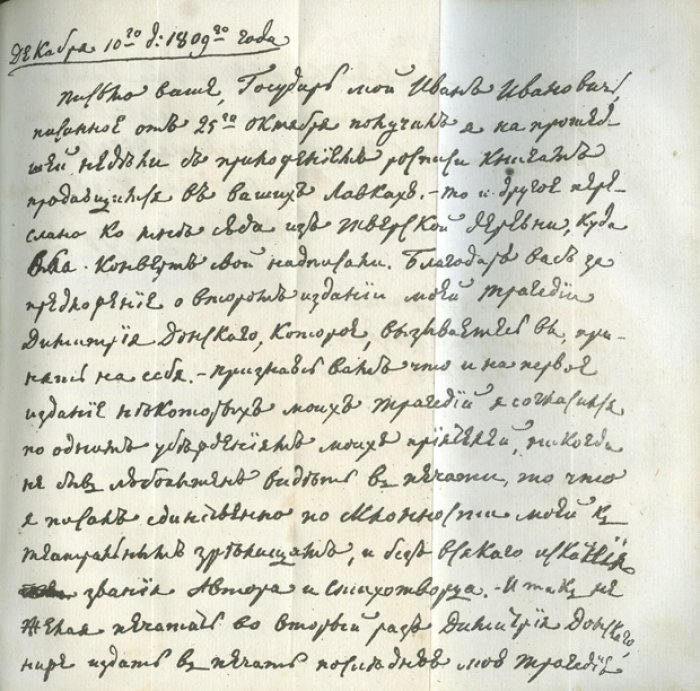 Декабря 10го д: 1809го года
Письмо ваше, Государь мой Иванъ Ивановичь,
писанное отъ 25го Октября получилъ я на прошед-
шей недѣли съ приложенiемъ росписи книгамъ
продающимся въ вашихъ лавкахъ. - то и другое пере-
слано ко мнѣ сюда изъ Тверской деревни, куда
вы конвертъ свой надписали. Благодарю васъ за
предложенiе о второмъ изданiи моей трагедiи
Димитрiя Донскаго, которое, вызываетесь вы, при-
нять на себя. - признаюсь вамъ что и на первое
изданiе нѣкоторыхъ моихъ трагедiй я согласился
по однимъ убѣжденiямъ моихъ прiятелей, никогда
не бывъ любопытенъ видѣть въ печати, то что
я писалъ единственно по склонности моей къ
театральнымъ зрѣлищамъ, и безъ всякаго исканiя
званiя Автора и стихотворца. - И такъ не
желая печатать во вторый разъ Димитрiя Донскаго
ниже издать въ печать послѣднюю мою трагедiю